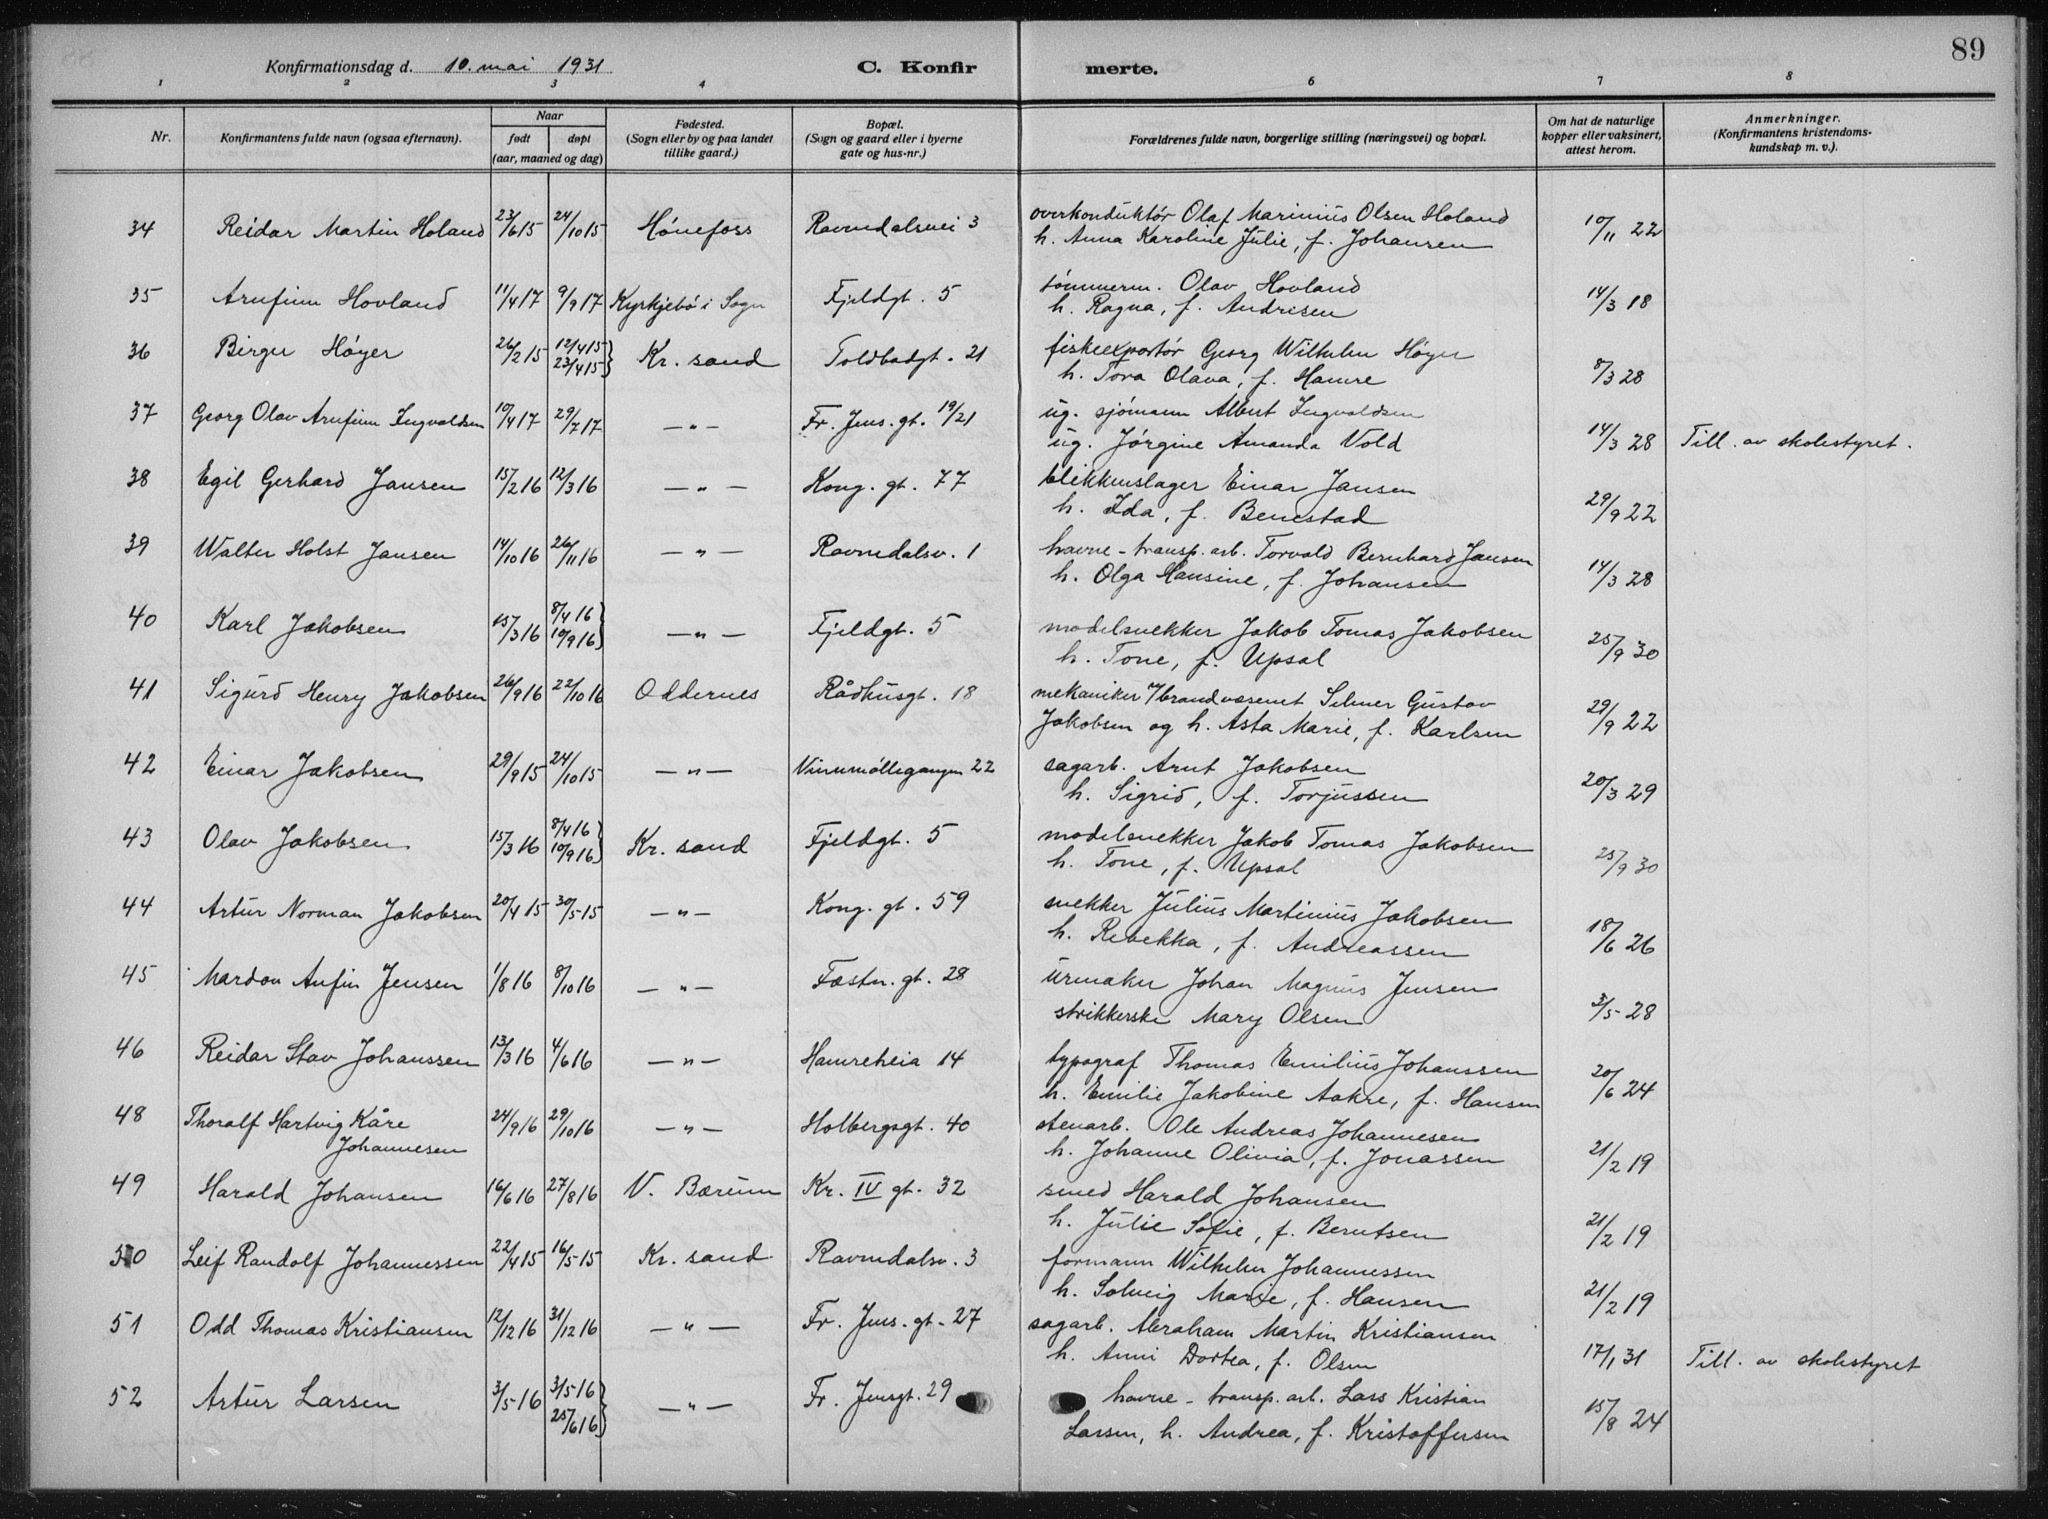 89
Konfirmationsdag d. 10. mai 1931
C. Konfirmerte.
1 2 3 4 6 7 8
Nr.
Konfirmantens fulde navn (ogsaa efternavn).
Naar
født døpt
(aar, maaned og dag)
Fødested.
(Sogn eller by og paa landet
tillike gaard.)
Bopæl.
(Sogn og gaard eller i byerne
gate og hus-nr.)
Forældrenes fulde navn, borgerlige stilling (næringsvei) og bopæl.
Om hat de naturlige
kopper eller vaksinert,
attest herom.
Anmerkninger.
(Konfirmantens kristendoms-
kundskap m. v.).
34 Reidar Martin Holand 23/6 15 24/10 15 Hønefoss Ravnedalsvei 3 overkonduktør Olaf Marinius Olsen Holand
h. Anna Karoline Julie, f. Johansen 10/11 22
35 Arnfinn Hovland 11/4 17 9/9 17 Kyrkjebø i Sogn Fjeldgt. 5 tømmerm. Olav Hovland
h. Ragna, f. Andrisen 14/3 18
36 Birger Høyer 26/2 15 12/4 15 Kr. sand Toldbodgt. 21 fiskeexportør Georg Wilhelm Høyer
23/4 15 h. Tora Olava, f. Hamre 8/3 28
37 Georg Olav Arnfinn Ingvaldsen 10/4 17 29/7 17 — " — Fr. Jens. gt. 19/21 ug. sjømann Albert Ingvaldsen
ug. Jørgine Amanda Vold 14/3 28 Till. av skolestyret.
38 Egil Gerhard Jansen 15/2 16 12/3 16 — " — Kong. gt. 77 blikkenslager Einar Jansen
h. Ida, f. Benestad 29/9 22
39 Walter Holst Jansen 14/10 16 26/11 16 — " — Ravnedalsv. 1 havne-transp. arb. Torvald Bernhard Jansen
h. Olga Hansine, f. Johansen 14/3 28
40 Karl Jakobsen 15/3 16 8/4 16 — " — Fjeldgt. 5 modelsnekker Jakob Tomas Jakobsen
10/9 16 h. Tone, f. Upsal 25/9 30
41 Sigurd Henry Jakobsen 26/9 16 22/10 16 Oddernes Rådhusgt. 18 mekaniker v/brandvæsenet Selmer Gustav
Jakobsen og h. Asta Marie, f. Karlsen 29/9 22
42 Einar Jakobsen 29/9 15 24/10 15 — " — Vinnmøllegangen 22 sagarb. Arnt Jakobsen
h. Sigrid, f. Torjussen 20/3 29
43 Olav Jakobsen 15/3 16 8/4 16 Kr. sand Fjeldgt. 5 modelsnekker Jakob Tomas Jakobsen
10/9 16 h. Tone, f. Upsal 25/9 30
44 Artur Norman Jakobsen 20/4 15 30/5 15 — " — Kong. gt. 59 snekker Julius Martinius Jakobsen
h. Rebekka, f. Andreassen 18/6 26
45 Mardon Anfin Jensen 1/8 16 8/10 16 — " — Fæstn. gt. 28 urmaker Johan Magnus Jensen
strikkerske Mary Olsen 3/5 28
46 Reidar Stav Johanssen 13/3 16 4/6 16 — " — Hamreheia 14 typograf Thomas Emilius Johanssen
h. Emilie Jakobine Aakre, f. Hansen 20/6 24
48 Thoralf Hartvig Kåre 24/9 16 29/10 16 — " — Holbergsgt. 40 stenarb. Ole Andreas Johannesen
Johannesen h. Johanne Olivia, f. Jonassen 21/2 19
49 Harald Johansen 16/6 16 27/8 16 V. Bærum Kr. IV gt. 32 smed Harald Johansen
h. Julie Sofie, f. Berntsen 21/2 19
50 Leif Randolf Johannessen 22/4 15 16/5 15 Kr. sand Ravnedalsv. 3 formann Wilhelm Johannessen
h. Solveig Marie, f. Hansen 21/2 19
51 Odd Thomas Kristiansen 12/12 16 31/12 16 — " — Fr. Jens. gt. 27 sagarb. Abraham Martin Kristiansen
h. Anni Dortea, f. Olsen 17/1 31 Till. av skolestyret
52 Artur Larsen 3/5 16 3/5 16 — " — Fr. Jensgt. 29 havne-transp. arb. Lars Kristian
25/6 16 Larsen, h. Andrea, f. Kristoffersen 15/8 24